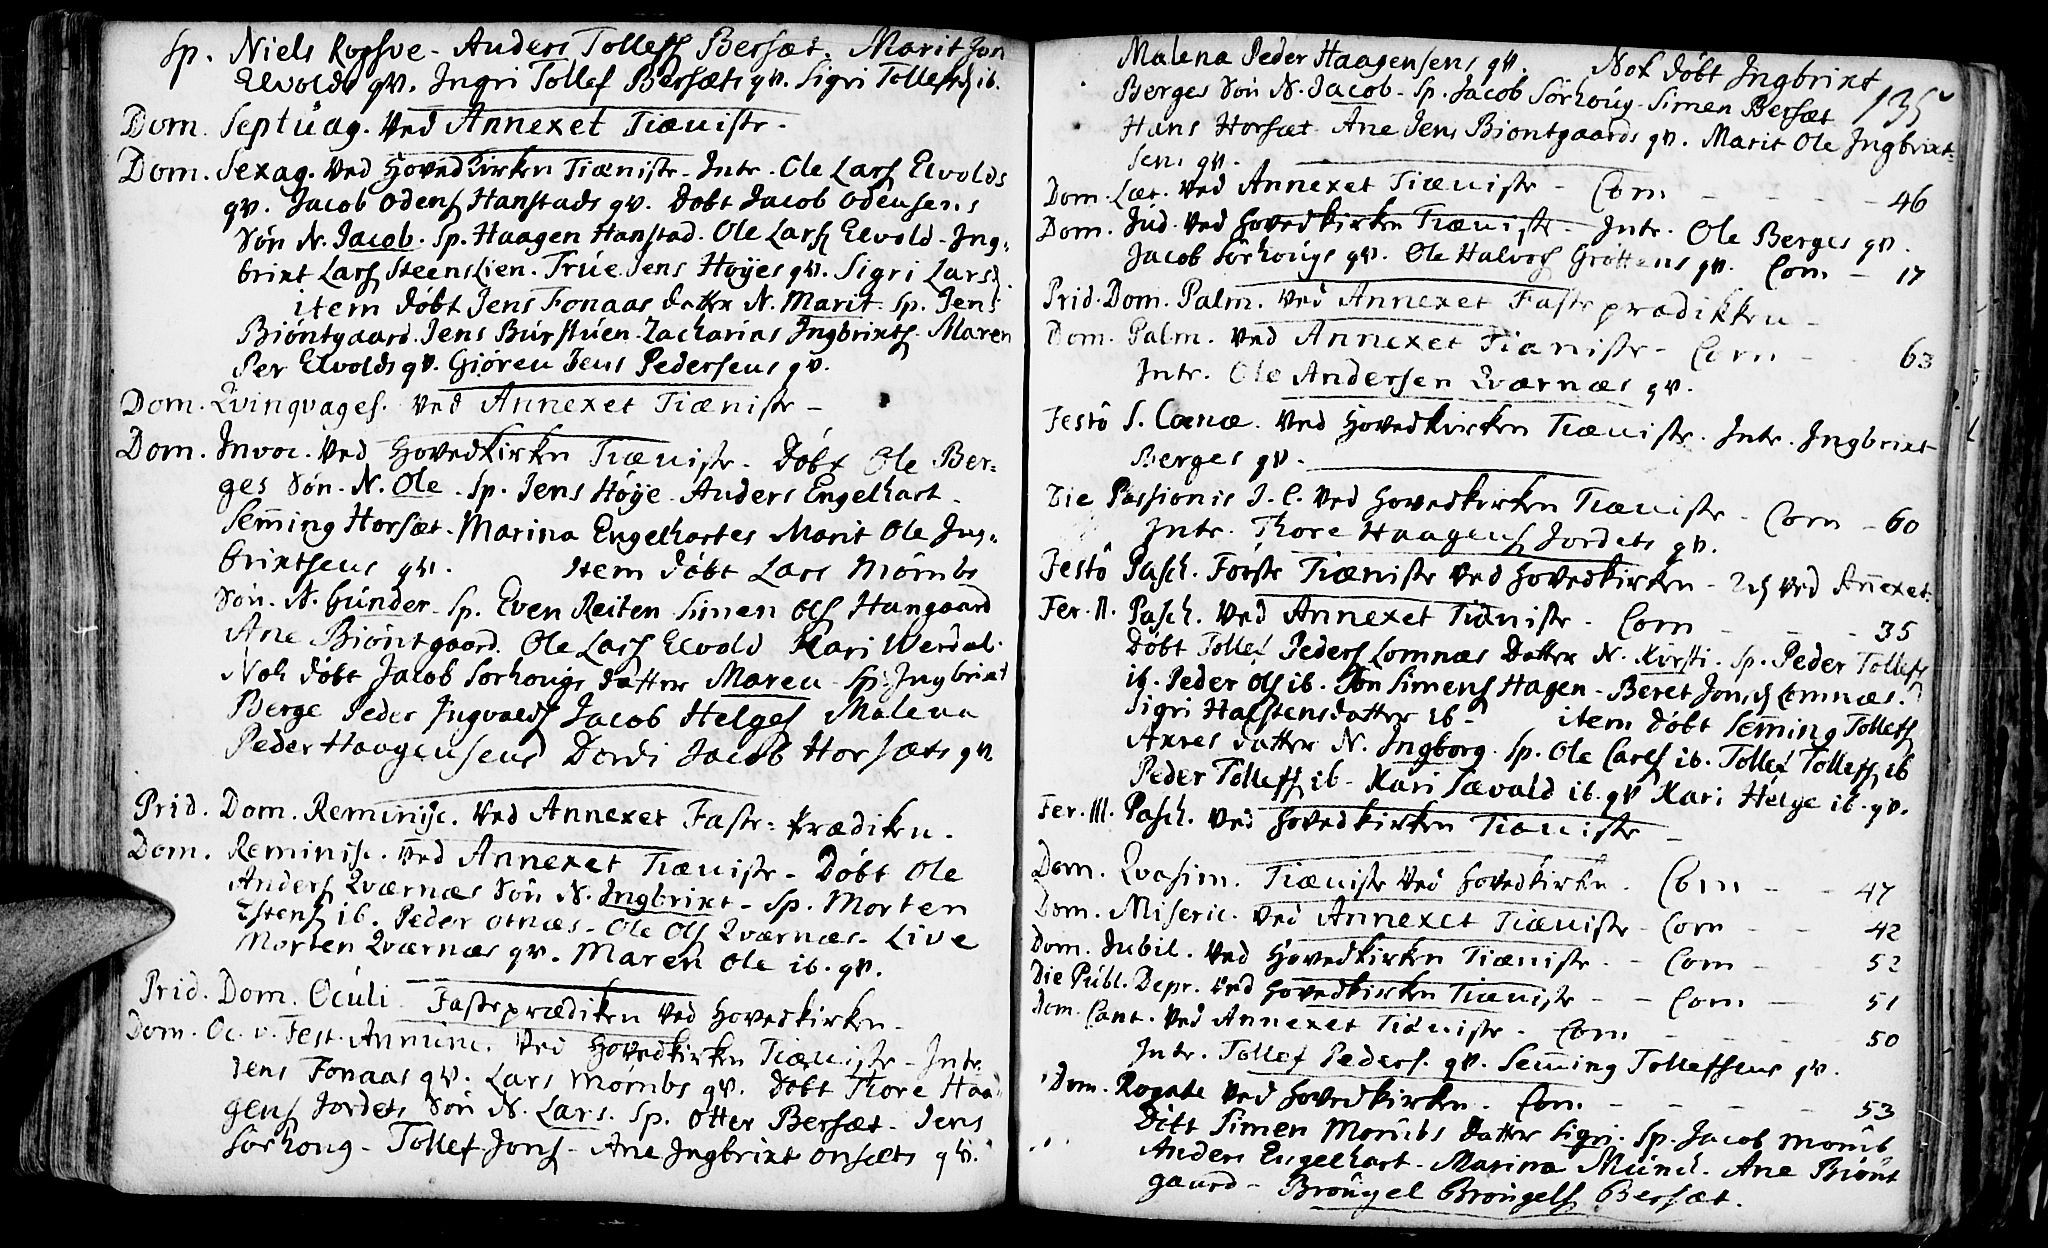 Sp. Niels Ropsve - Anders Tollefs Bersæt. Marit Jon
Elvolds qv. Ingri Tollef Bersæts qv. Sigri Tollefsd ib.
Dom. Septuag. Ved Annexet Tiæniste -
Dom. Sexag. Ved Hovedkirken Tiæniste - Intr. Ole Lars Elvolds
qv. Jacob Odens Hanstads qv. Døbt Jacob Odensens
Søn N. Jacob. Sp. Haagen Hanstad. Ole Lars Elvold - Ing-
brixt Lars Steenslien. True Jens Høyes qv. Sigri Larsd.
item døbt Jens Fonaas datter N. Marit. Sp. Jens
Biöntgaard. Jens Burstuen. Zacharias Ingbrixts. Maren
Per Elvolds qv. Giøren Jens Pedersens qv.
Dom. Qvinqvages. Ved Annexet Tiæniste -
Dom. Invoc. Ved Hovedkirken Tiæniste. Døbt Ole Ber-
ges Søn. N. Ole. Sp. Jens Höye. Anders Engelhart.
Semming Horsæt. Marina Engelhartes Marit Ole Ing-
brixtsens qv. Item døbt Lars Mömbs
Søn. N. Gunder. Sp. Even Reiten Simen Ols Hangaard
Ane Biöntgaard. Ole Lars Elvold Kari Werdal.
Nok døbt Jacob Sörhougs datter Maren - Sp. Ingbrixt
Berge Peder Ingvalds Jacob Helges Malena
Peder Haagensens Dordi Jacob Horsæts qv.
Prid. Dom. Reminisc. Ved Annexet Faste-Prædiken.
Dom. Reminisc. Ved Annexet Tiæniste - Døbt Ole
Anders Qværnæs Søn N. Ingbrixt - Sp. Morten
Estens ib. Peder Otnæs - Ole Ols Qværnæs. Live
Morten Qværnæs qv. Maren Ole ib. qv.
Prid. Dom. Oculi Fasteprædiken Ved Hovedkirken.
Dom. Oc. v. Fest. Annunc. Ved Hovedkirken Tiæniste - Intr.
Jens Fonaas qv. Lars Mömbs qv. Döbt Thore Haa-
gens Jordets Søn N. Lars. Sp. Otter Bersæt. Jens
Sörhoug - Tollef Jons - Ane Ingbrixt Onsæts qv.
Malena Peder Haagensens qv. Nok döbt Ingbrixt
135
Berges Søn N. Jacob - Sp. Jacob Sörhoug - Simen Bersæt
Hans Horsæt Ane Jens Biöntgaards qv. Marit Ole Ingbrixt-
sens qv.
Dom. Læt. Ved Annexet Tiæniste - Com - - - 46
Dom. Jud. Ved Hovedkirken Tiæniste - Intr. Ole Berges qv.
Jacob Sörhougs qv. Ole Halvors Gröttens qv. Com - 17
Prid. Dom. Palm. Ved Annexet Fasteprædikken -
Dom. Palm. Ved Annexet Tiæniste - Com - - 63
Intr. Ole Andersen Qværnæs qv.
Festo S. Coenæ. Ved Hovedkirken Tiæniste. Intr. Ingbrixt
Berges qv.
Die Passionis J. C. Ved Hovedkirken Tiæniste - Com - 60
Intr. Thore Haagens Jordets qv.
Festo Pasch. Förste Tiæniste Ved Hovedkirken - 2d Ved Annexet.
Fer. II. Pasch. Ved Annexet Tiæniste. Com - - - 35
Döbt Tollef Peders Lomnæs Datter N. Kirsti. Sp. Peder Tollefs
ib. Peder Ols ib. Jon Simens Hagen - Beret Jonsd Lomnæs.
Sigri Halstensdatter ib - item döbt Semming Tollefs
Aares datter N. Ingborg. Sp. Ole Carls ib. Tollef Tollefs ib
Peder Tollefs ib - Kari Sævald ib. qv Kari Helge ib. qv.
Fer. III. Pasch. Ved Hovedkirken Tiæniste -
Dom. Qvasim. Tiæniste Ved Hovedkirken. Com - - 47
Dom. Miseric. Ved Annexet Tiæniste - Com - - 42
Dom. Jubil. Ved Hovedkirken Tiæniste. - Com - - 52
Die Publ. Depr. Ved Hovedkirken Tiæniste - - Com - 51
Dom. Cant. Ved Annexet Tiæniste. Com - - - - 50
Intr. Tollef Peders. qv. Semming Tollefsens qv.
Dom. Rogate Ved Hovedkirken. Com. - - - - 53
Ditt Simen Mömbs datter Sigri. Sp. Jacob Mömb
Anders Engelhart - Marina Münch. Ane Biönt
gaard - Bröngel Bröngels Bersæt.